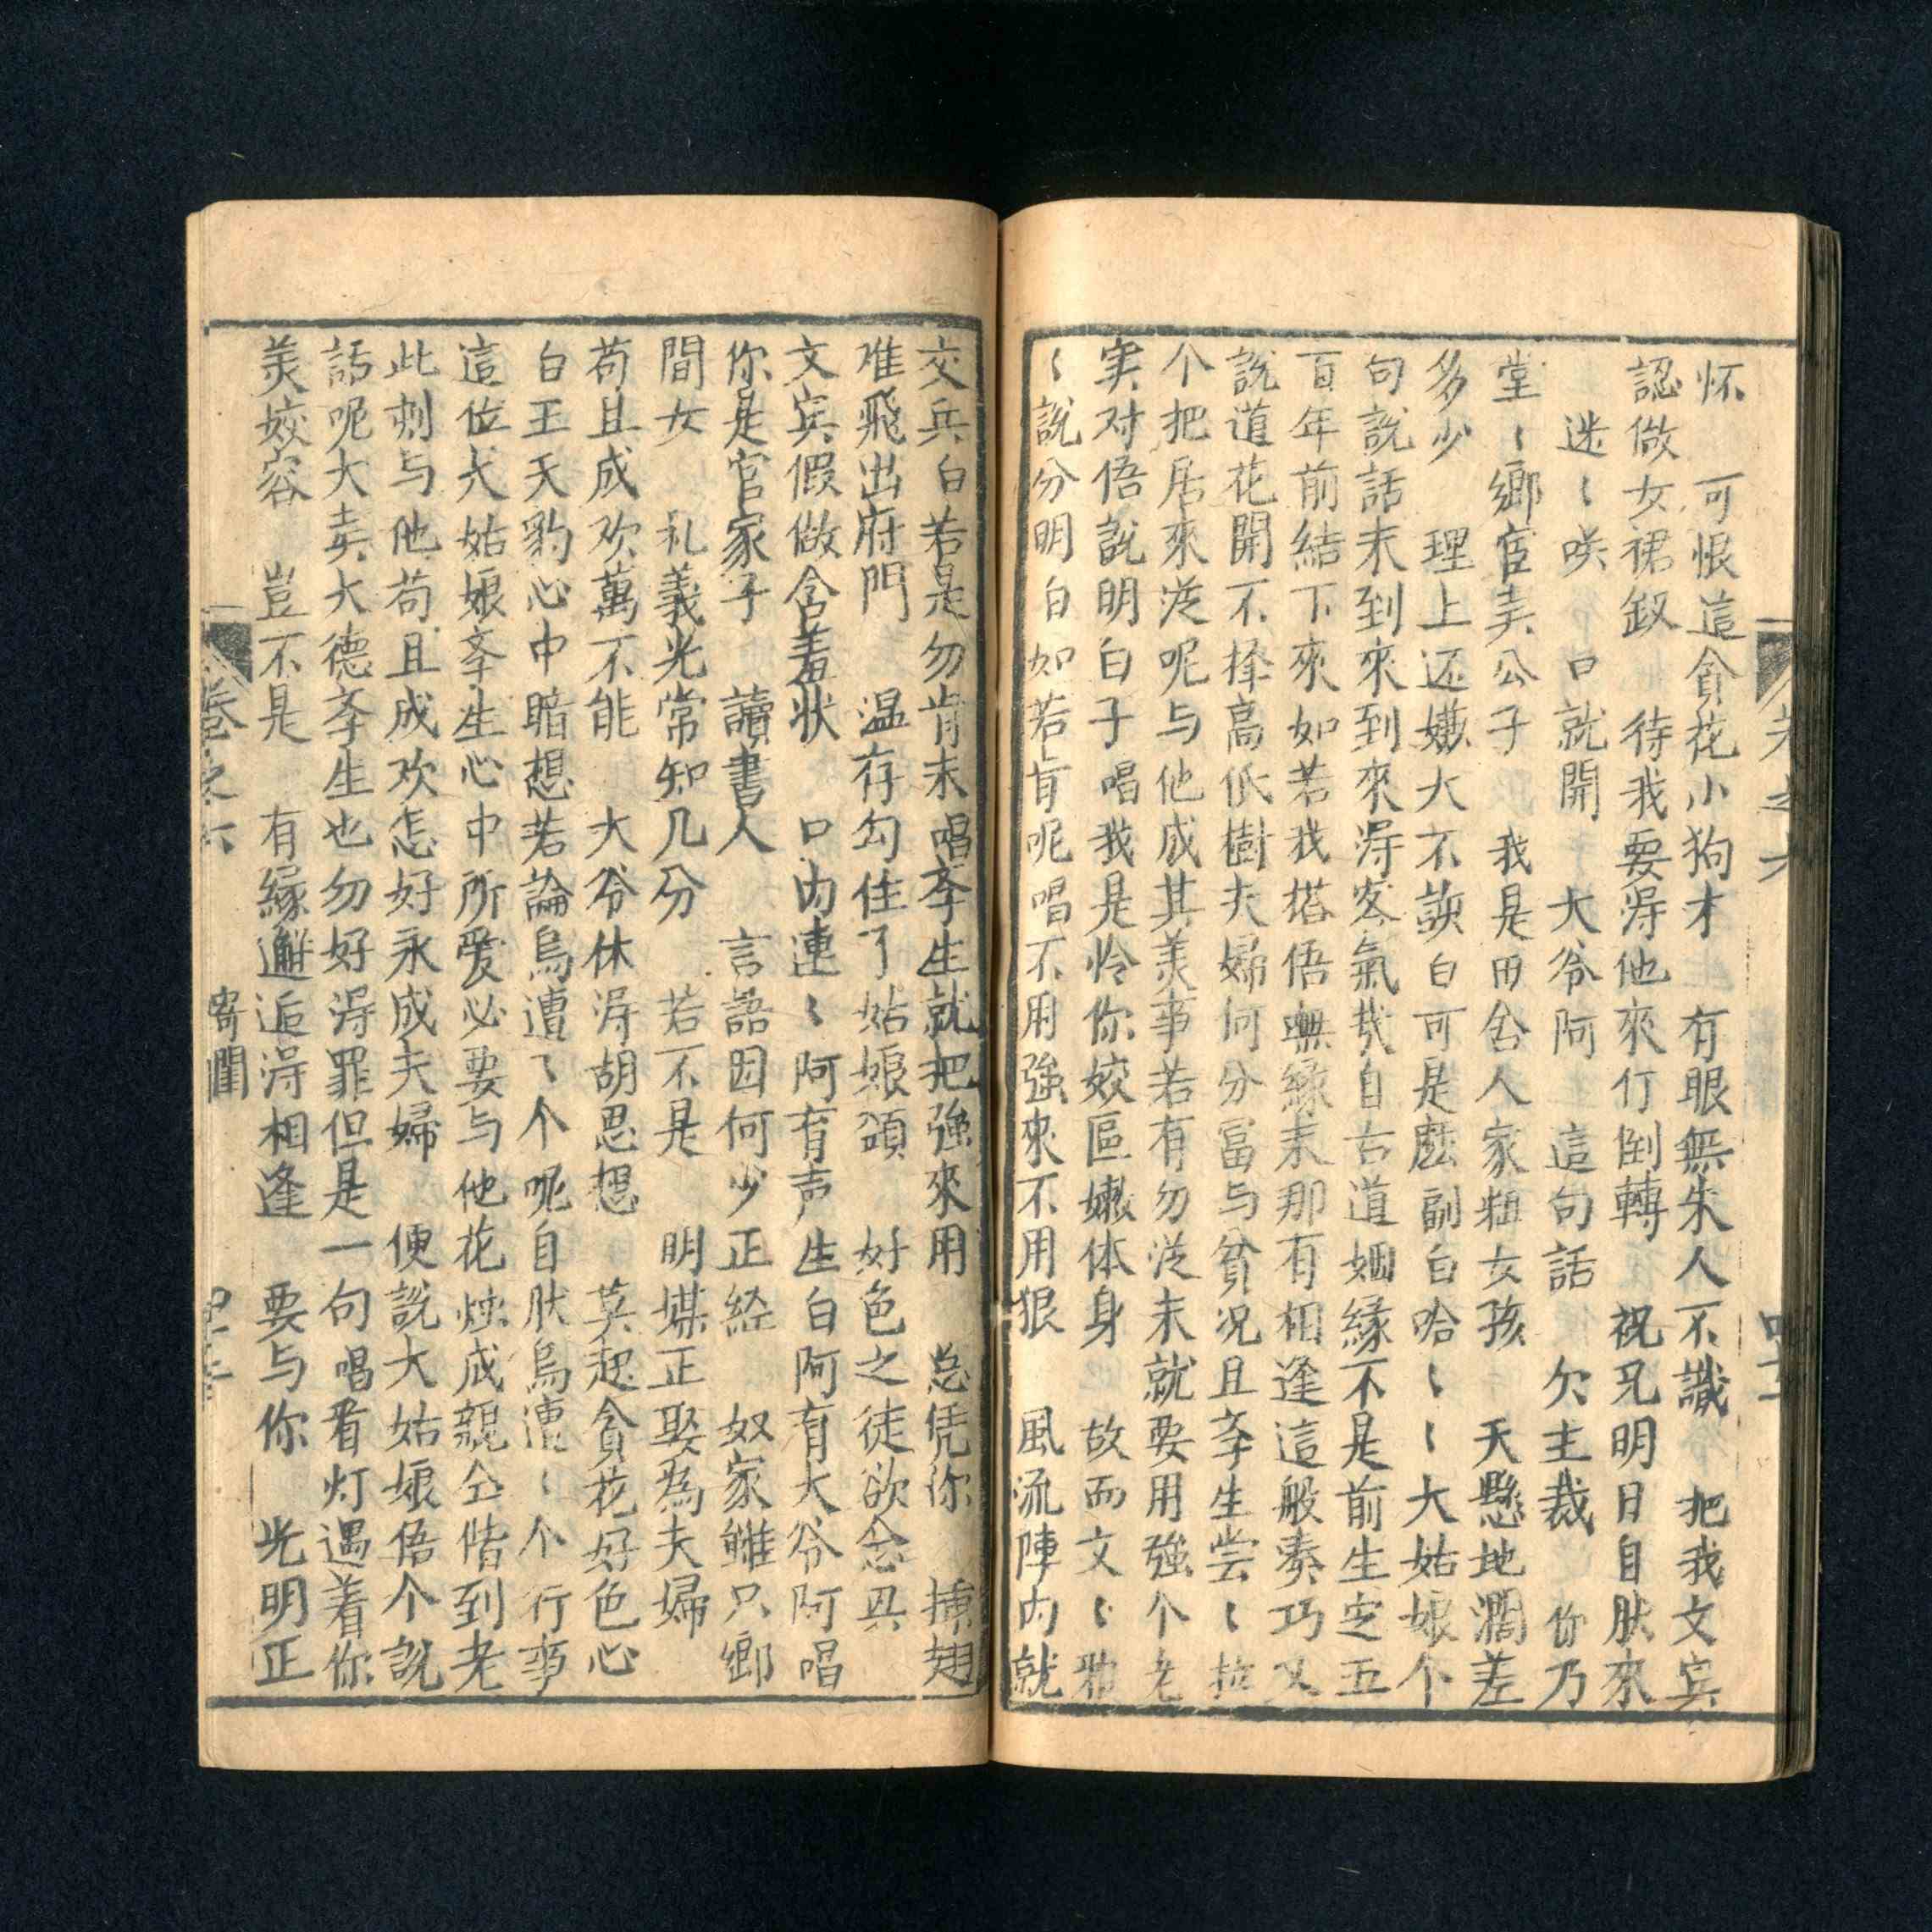 怀　可恨這貪花小狗才　有眼無朱人不識　把我文宾
認做女裙釵　待我要淂他來仃倒轉　祝兄明日自肽來
迷〻咲　口就開　大爷阿　這句話　欠主裁　你乃
堂〻鄉宦美公子　我是田舍人家粗女孩　天懸地濶差
多少　理上还嫌大不該白可是麽副白哈〻〻大姑娘个
句說話末到來到來淂客氣哉自古道姻緣不是前生定五
百年前結下來如若我搭俉無緣末那有相逢這般奏巧又
說道花開不择高低樹夫婦何分冨与貧况且李生尝〻拉
个把居來涳呢与他成其美事若有勿涳末就要用強个老
実对俉說明白子唱我是怜你姣區嫩体身　故而文〻雅
〻說分明白如若肯呢唱不用強來不用狠　風流陣内就
交兵白若是勿肯末唱李生就把強來用　总凭你　揷翅
难飛出府門　温存勾住了姑娘頭　好色之徒欲念具
文宾假做含羞状　口内連〻阿有声生白阿有大爷阿唱
你是官家子　讀書人　言語因何少正経　奴家雖只鄉
間女　礼義光常知几分　若不是　明媒正娶為夫婦
苟且成欢萬不能　大爷休淂胡思想　莫起貪花好色心
白王天豹心中暗想若論烏遭〻个呢自肽烏遭〻个行事
這位大姑娘李生心中所爱必要与他花烛成親仝偕到老
此刻与他苟且成欢怎好永成夫婦　便說大姑娘俉个說
話呢大奍大德李生也勿好淂罪但是一句唱看灯遇着你
美姣容　豈不是　有緣邂逅淂相逢　要与你　光明正
卷之六　寄閨